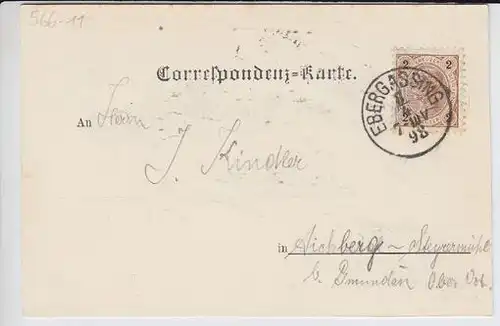 566-11
2 2
Correspondenz-Karte.
EBERGASSING
98
An Herrn
J. Kindler
in Aichberg - Steyrermühl
b. Gmunden Ober Öst.